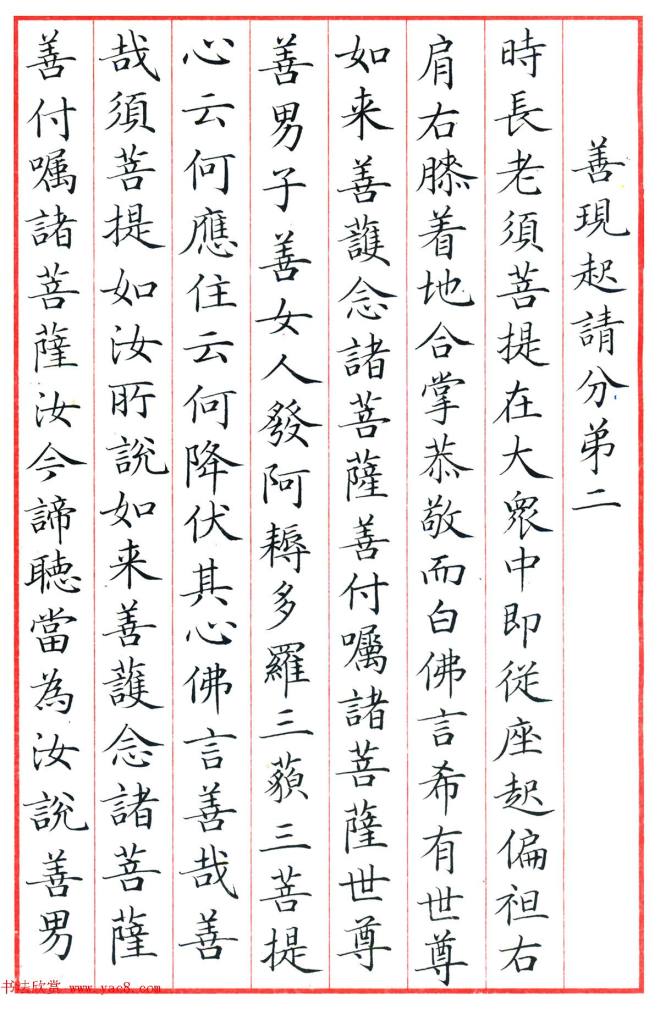 善現起請分弟二
時長老須菩提在大衆中即從座起偏袒右
肩右膝着地合掌恭敬而白佛言希有世尊
如来善護念諸菩薩善付囑諸菩薩世尊
善男子善女人發阿耨多羅三藐三菩提
心云何應住云何降伏其心佛言善哉善
哉須菩提如汝所說如来善護念諸菩薩
善付囑諸菩薩汝今諦聽當為汝說善男
书法欣赏 www.yac8.com